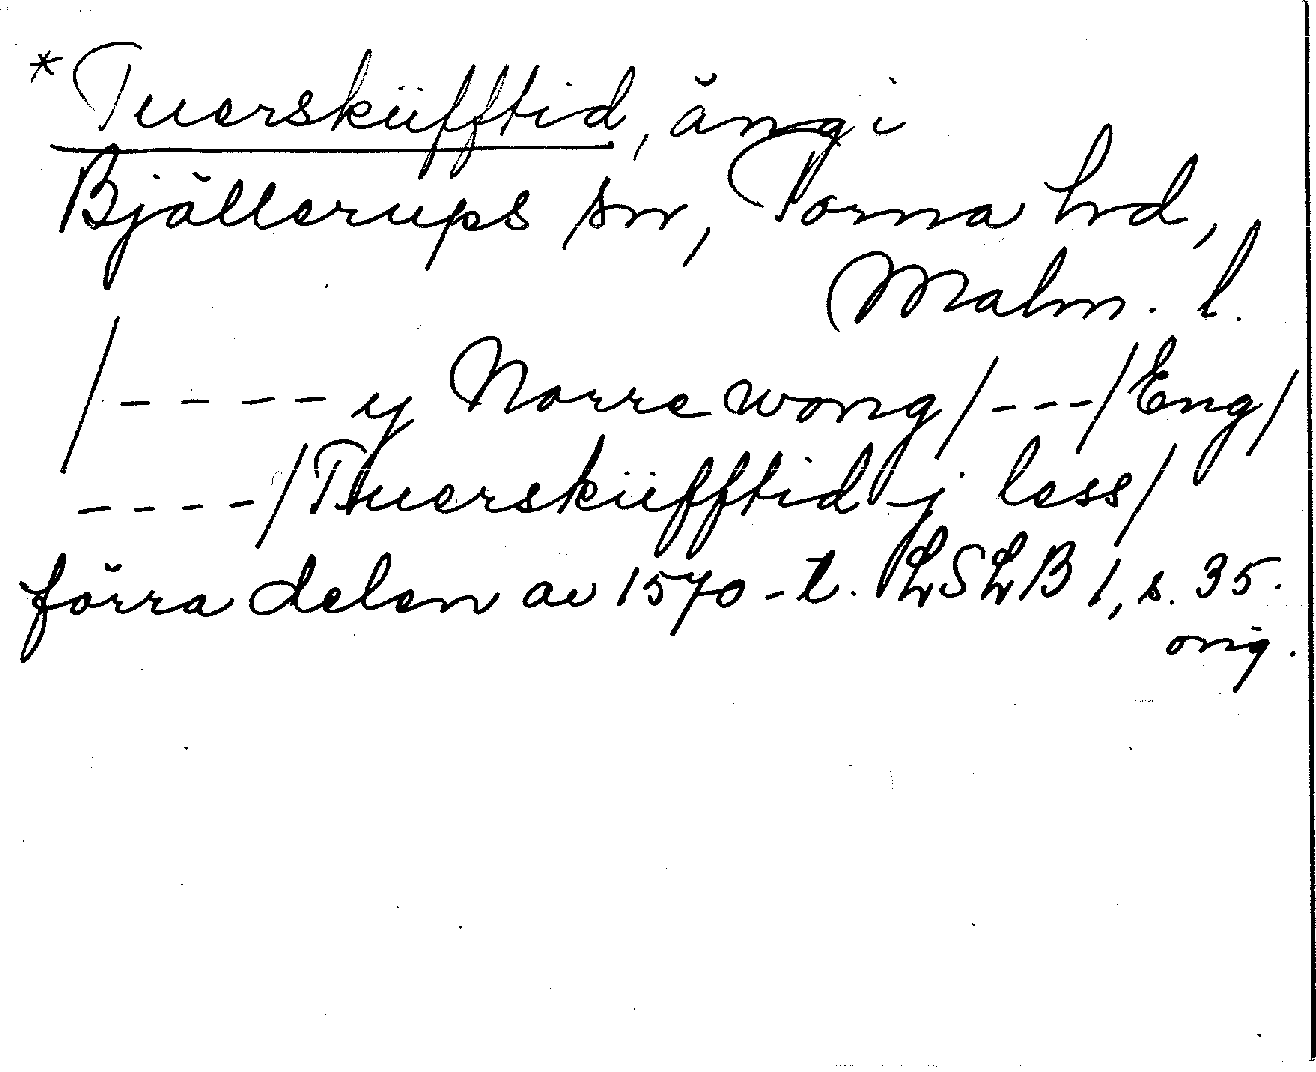 *Tuerskiifftid, äng i
Bjällerups sn, Torna hd,
Malm. l.
/---- y Norre wong/---/Eng/
----/Tuerskiifftid j less/
förra delen av 1570-t. LSLB 1, s. 35.
orig.